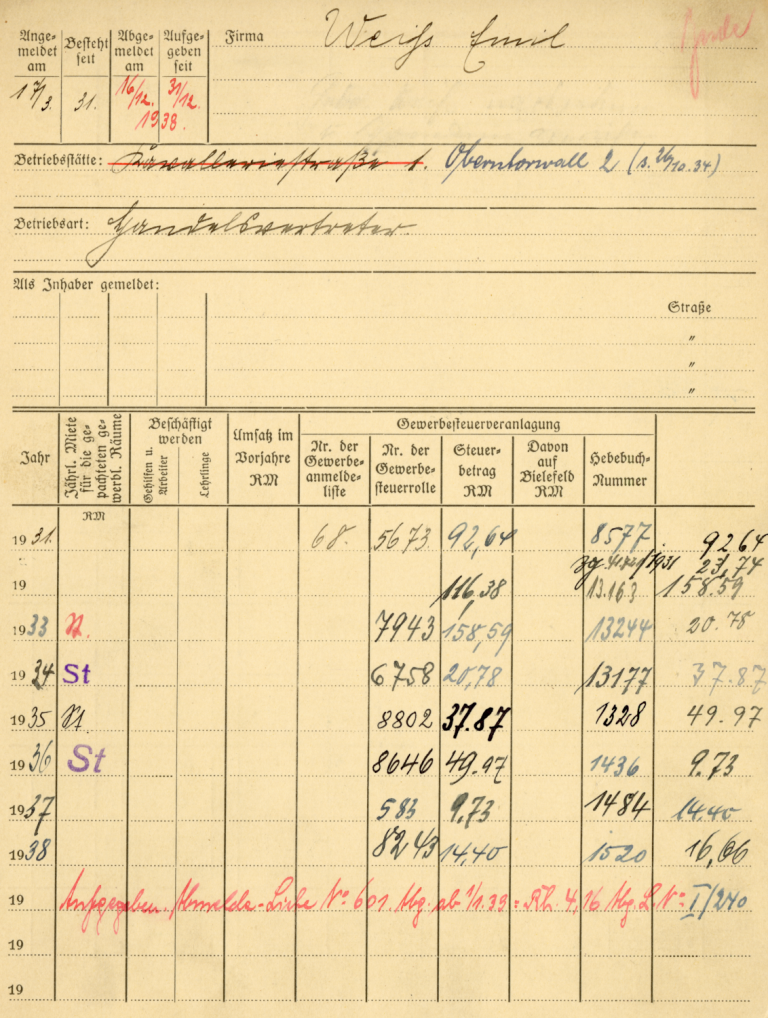 Ange-
meldet
am
Besteht
seit
Abge-
meldet
am
Aufge-
geben
seit
Firma Weiß Emil
17/3. 31. 16/12. 31/12.
1938.
Betriebsstätte: Kavalleriestraße 1. Oberntorwall 2 (s. 26/10.34)
Betriebsart: Handelsvertreter
Als Inhaber gemeldet:
Straße
"
"
"
Jahr
Jährl. Miete
für die ge-
pachteten ge-
werbl. Räume
Beschäftigt
werden
Gehilfen u.
Arbeiter
Lehrlinge
Umsatz im
Vorjahre
RM
Gewerbesteuerveranlagung
Nr. der
Gewerbe-
anmelde-
liste
Nr. der
Gewerbe-
steuerrolle
Steuer-
betrag
RM
Davon
auf
Bielefeld
RM
Hebebuch-
Nummer
RM
1931. 68. 5673 92,64 8577 92 64
zg /1931 23,74
19 116,38 13.163 158.59
1933 St. 7943 158,59 13244 20.78
1934 St 6758 20,78 13177 37.87
1935 St. 8802 37.87 1328 49.97
1936 St 8646 49.97 1436 9.73
1937 583 9,73 1484 14.40
1938 8243 14,40 1520 16,66
19 Aufgegeben. Abmelde-Liste No 601. Abg. ab 1/1.39 = 4,16 Abg. L No I/240
19
19